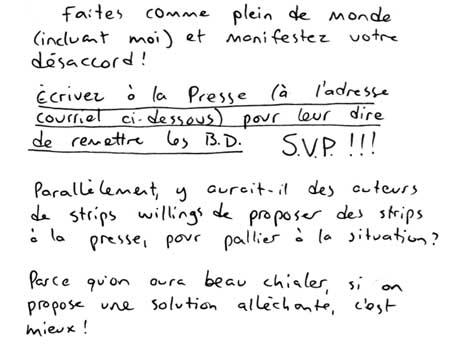 Faites comme plein de monde
(incluant moi) et manifestez votre
désaccord !
Écrivez à la Presse (à l'adresse
courriel ci-dessous) pour leur dire
de remettre les B.D. S.V.P. !!!
Parallèlement, y aurait-il des auteurs
de strips willings de proposer des strips
à la presse, pour pallier à la situation ?
Parce qu'on aura beau chialer, si on
propose une solution alléchante, c'est
mieux !